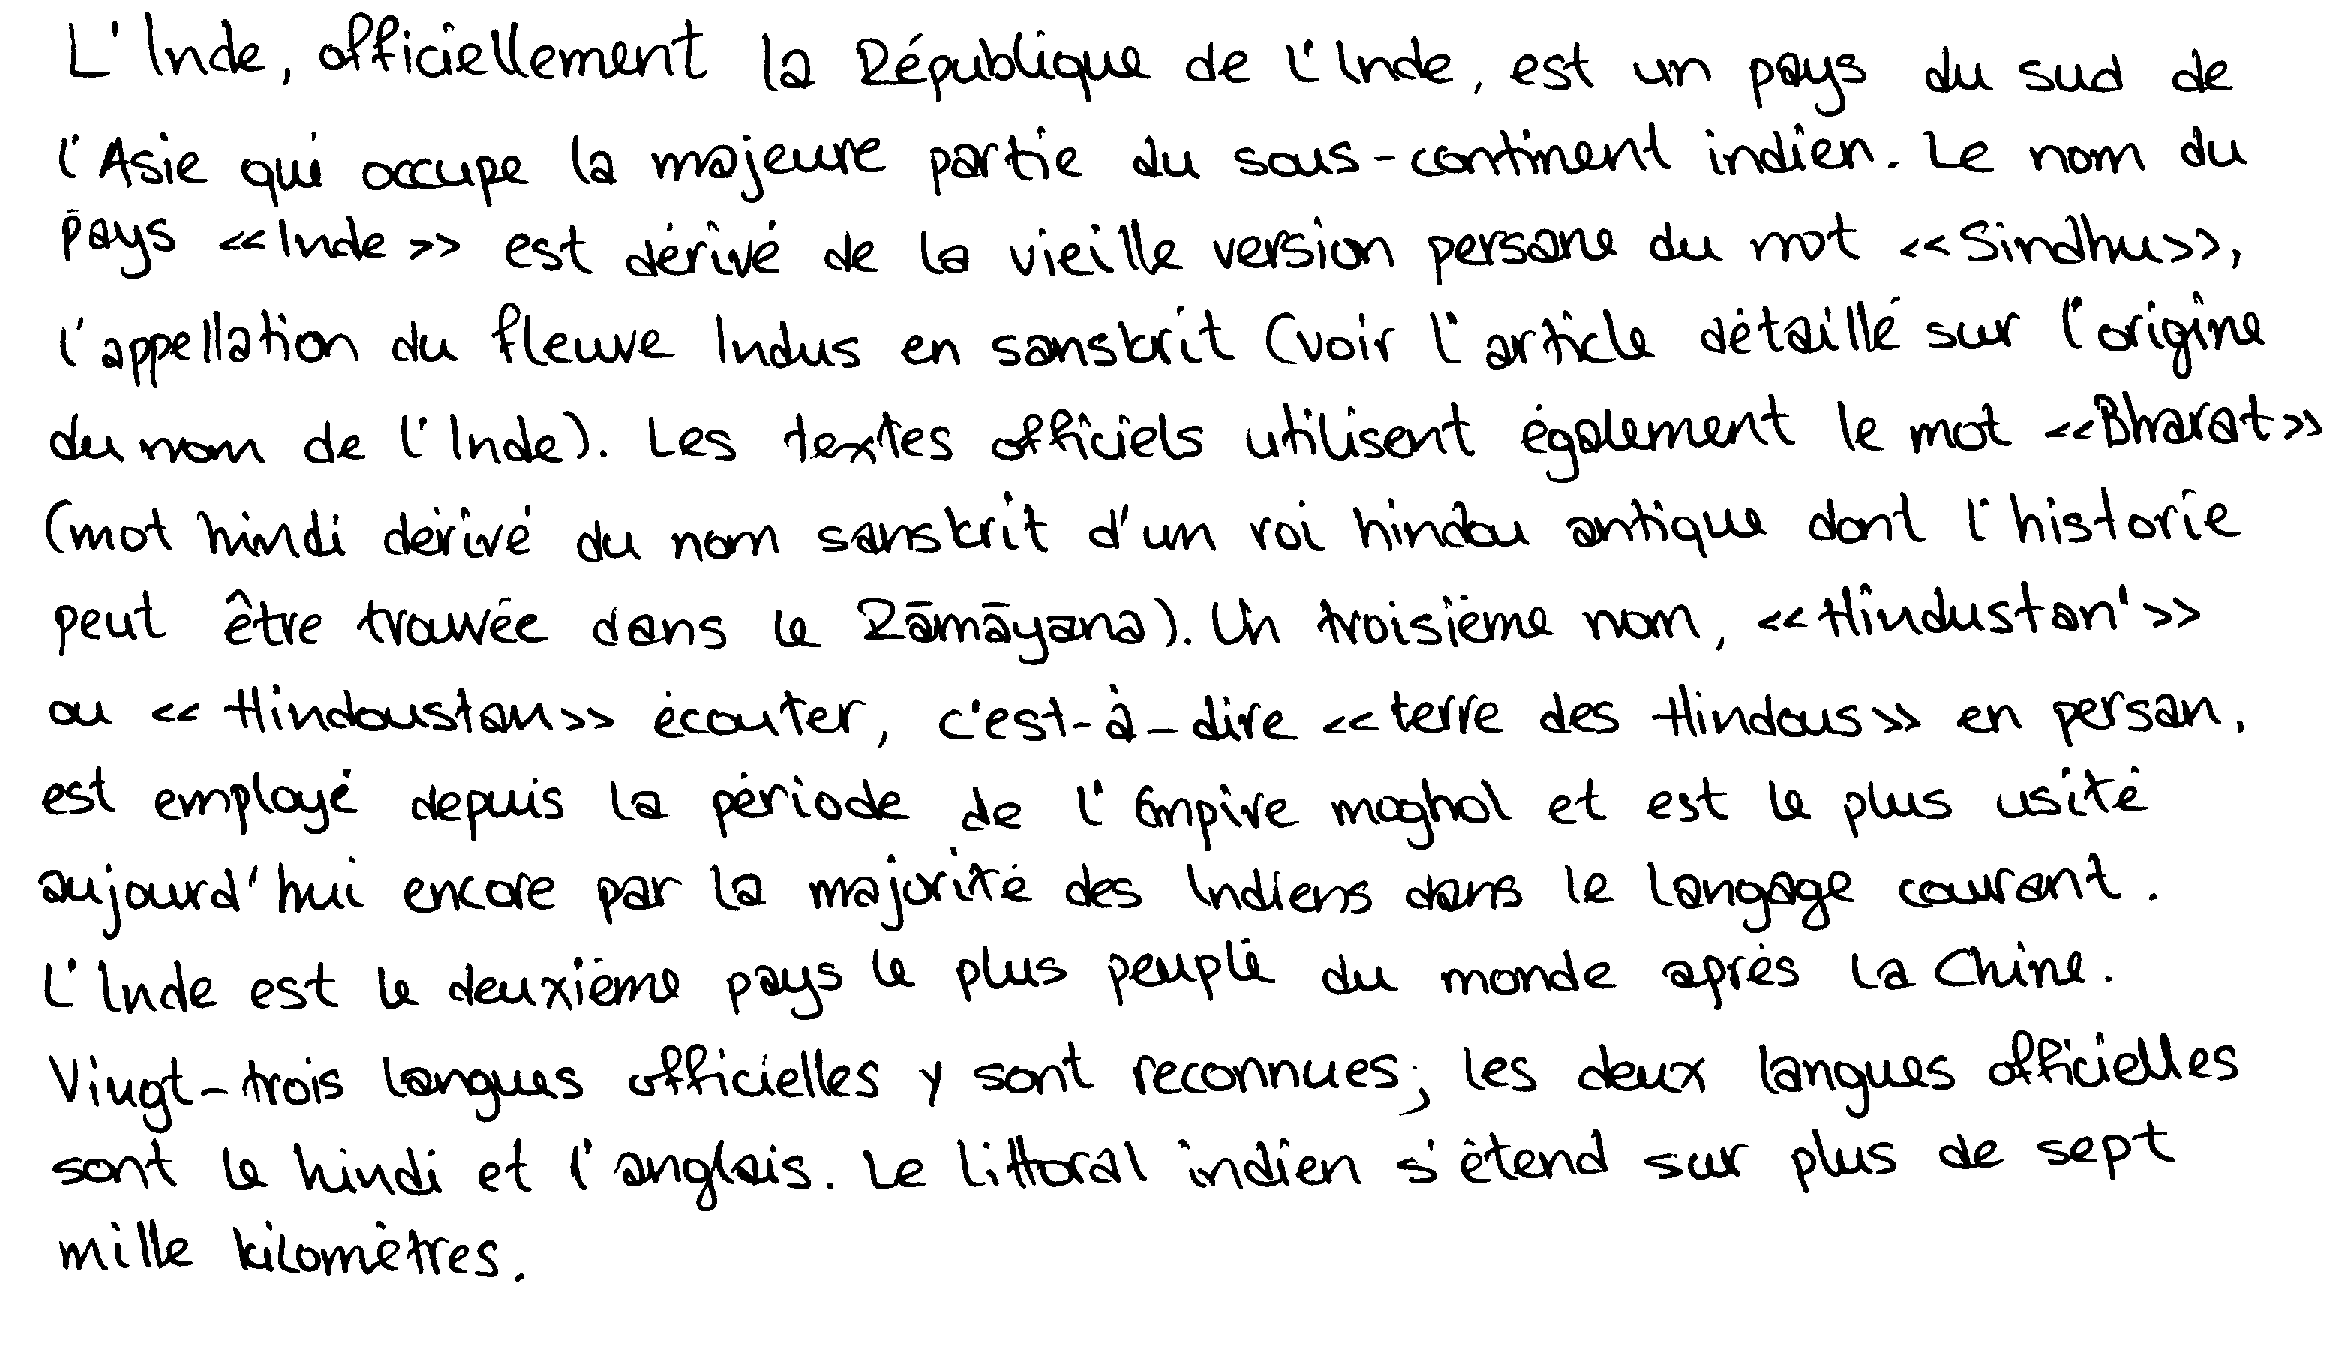 L'Inde, officiellement la République de l'Inde, est un pays du sud de
l'Asie qui occupe la majeure partie du sous-continent indien. Le nom du
pays <<Inde>> est dérivé de la vieille version persane du mot <<Sindhu>>,
l'appellation du fleuve Indus en sanskrit (voir l'article détaillé sur l'origine
du nom de l'Inde). Les textes officiels utilisent également le mot <<Bharat>>
(mot hindi dérivé du nom sanskrit d'un roi hindou antique dont l'historie
peut être trouvée dans le Rāmāyana). Un troisième nom, <<Hindustan'>>
ou <<Hindoustan>> écouter, c'est-à-dire <<terre des Hindous>> en persan,
est employé depuis la période de l'Empire moghol et est le plus usité
aujourd'hui encore par la majorité des Indiens dans le langage courant.
L'Inde est le deuxième pays le plus peuplé du monde après la Chine.
Vingt-trois langues officielles y sont reconnues; les deux langues officielles
sont le hindi et l'anglais. Le littoral indien s'étend sur plus de sept
mille kilomètres.